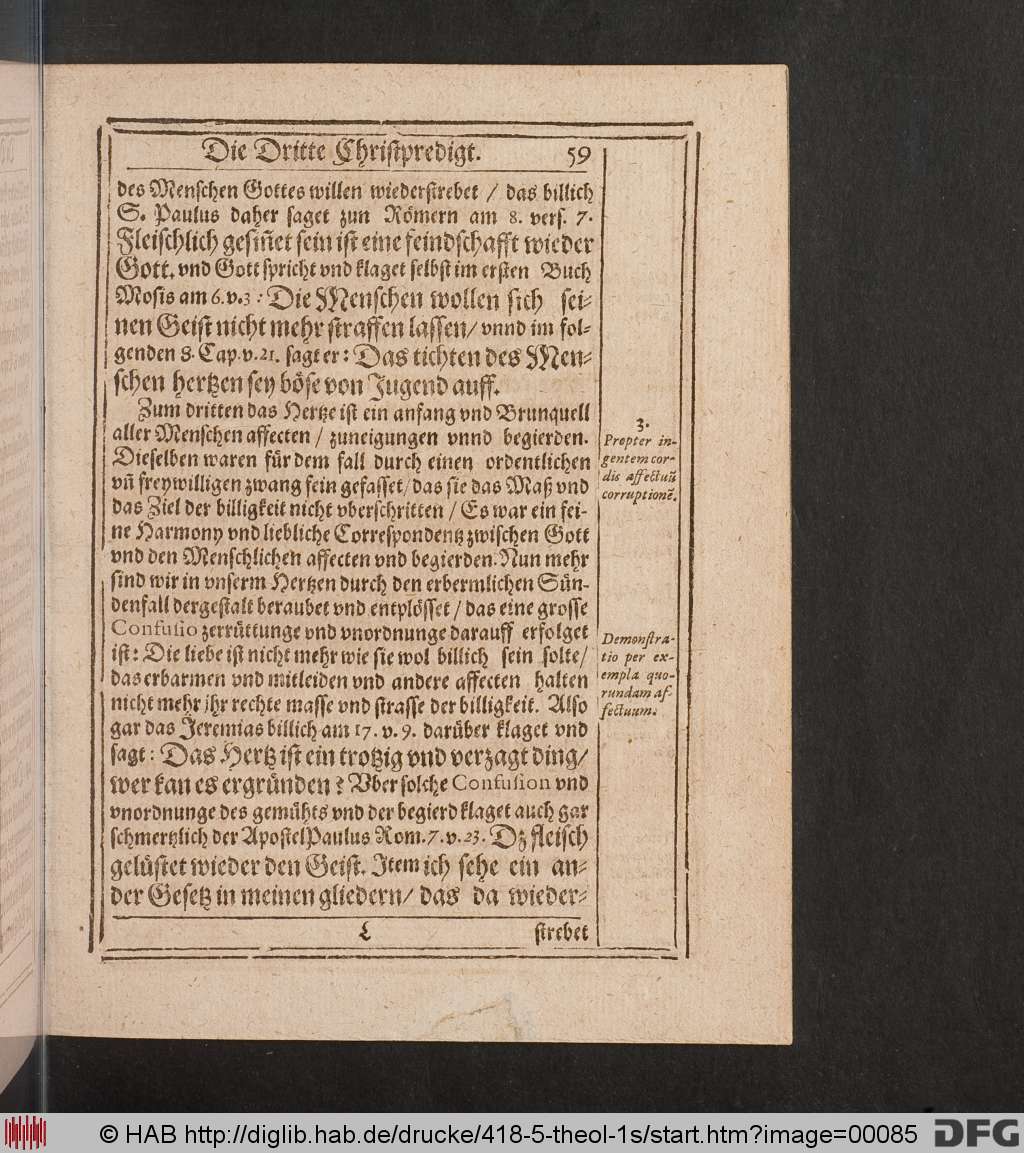 Die Dritte Christpredigt. 59
des Menschen Gottes willen wiederstrebet / das billich
S. Paulus daher saget zun Römern am 8. vers. 7.
Fleischlich gesiñet sein ist eine feindschafft wieder
Gott. vnd Gott spricht vnd klaget selbst im ersten Buch
Mosis am 6. v. 3 : Die Menschen wollen sich sei-
nen Geist nicht mehr straffen lassen / vnnd im fol-
genden 8. Cap. v. 21. sagt er : Das tichten des Men-
schen hertzen sey böse von Jugend auff.
Zum dritten das Hertze ist ein anfang vnd Brunquell
aller Menschen affecten / zuneigungen vnnd begierden.
Dieselben waren für dem fall durch einen ordentlichen
vñ freywilligen zwang fein gefasset / das sie das Maß vnd
das Ziel der billigkeit nicht vberschritten / Es war ein fei-
ne Harmony vnd liebliche Correspondentz zwischen Gott
vnd den Menschlichen affecten vnd begierden. Nun mehr
sind wir in vnserm Hertzen durch den erbermlichen Sün-
denfall dergestalt beraubet vnd entplösset / das eine grosse
Confusio zerrüttunge vnd vnordnunge darauff erfolget
ist : Die liebe ist nicht mehr wie sie wol billich sein solte /
das erbarmen vnd mitleiden vnd andere affecten halten
nicht mehr jhr rechte masse vnd strasse der billigkeit. Also
gar das Jeremias billich am 17. v. 9. darüber klaget vnd
sagt : Das Hertz ist ein trotzig vnd verzagt ding /
wer kan es ergründen ? Vber solche Confusion vnd
vnordnunge des gemühts vnd der begierd klaget auch gar
schmertzlich der Apostel Paulus Rom. 7. v. 23. Dz fleisch
gelüstet wieder den Geist. Item ich sehe ein an-
der Gesetz in meinen gliedern / das da wieder-
L strebet
3.
Propter in-
gentem cor-
dis affectuũ
corruptionẽ.
Demonstra-
tio per ex-
empla quo-
rundam af-
fectuum.
© HAB http://diglib.hab.de/drucke/418-5-theol-1s/start.htm?image=00085
DFG